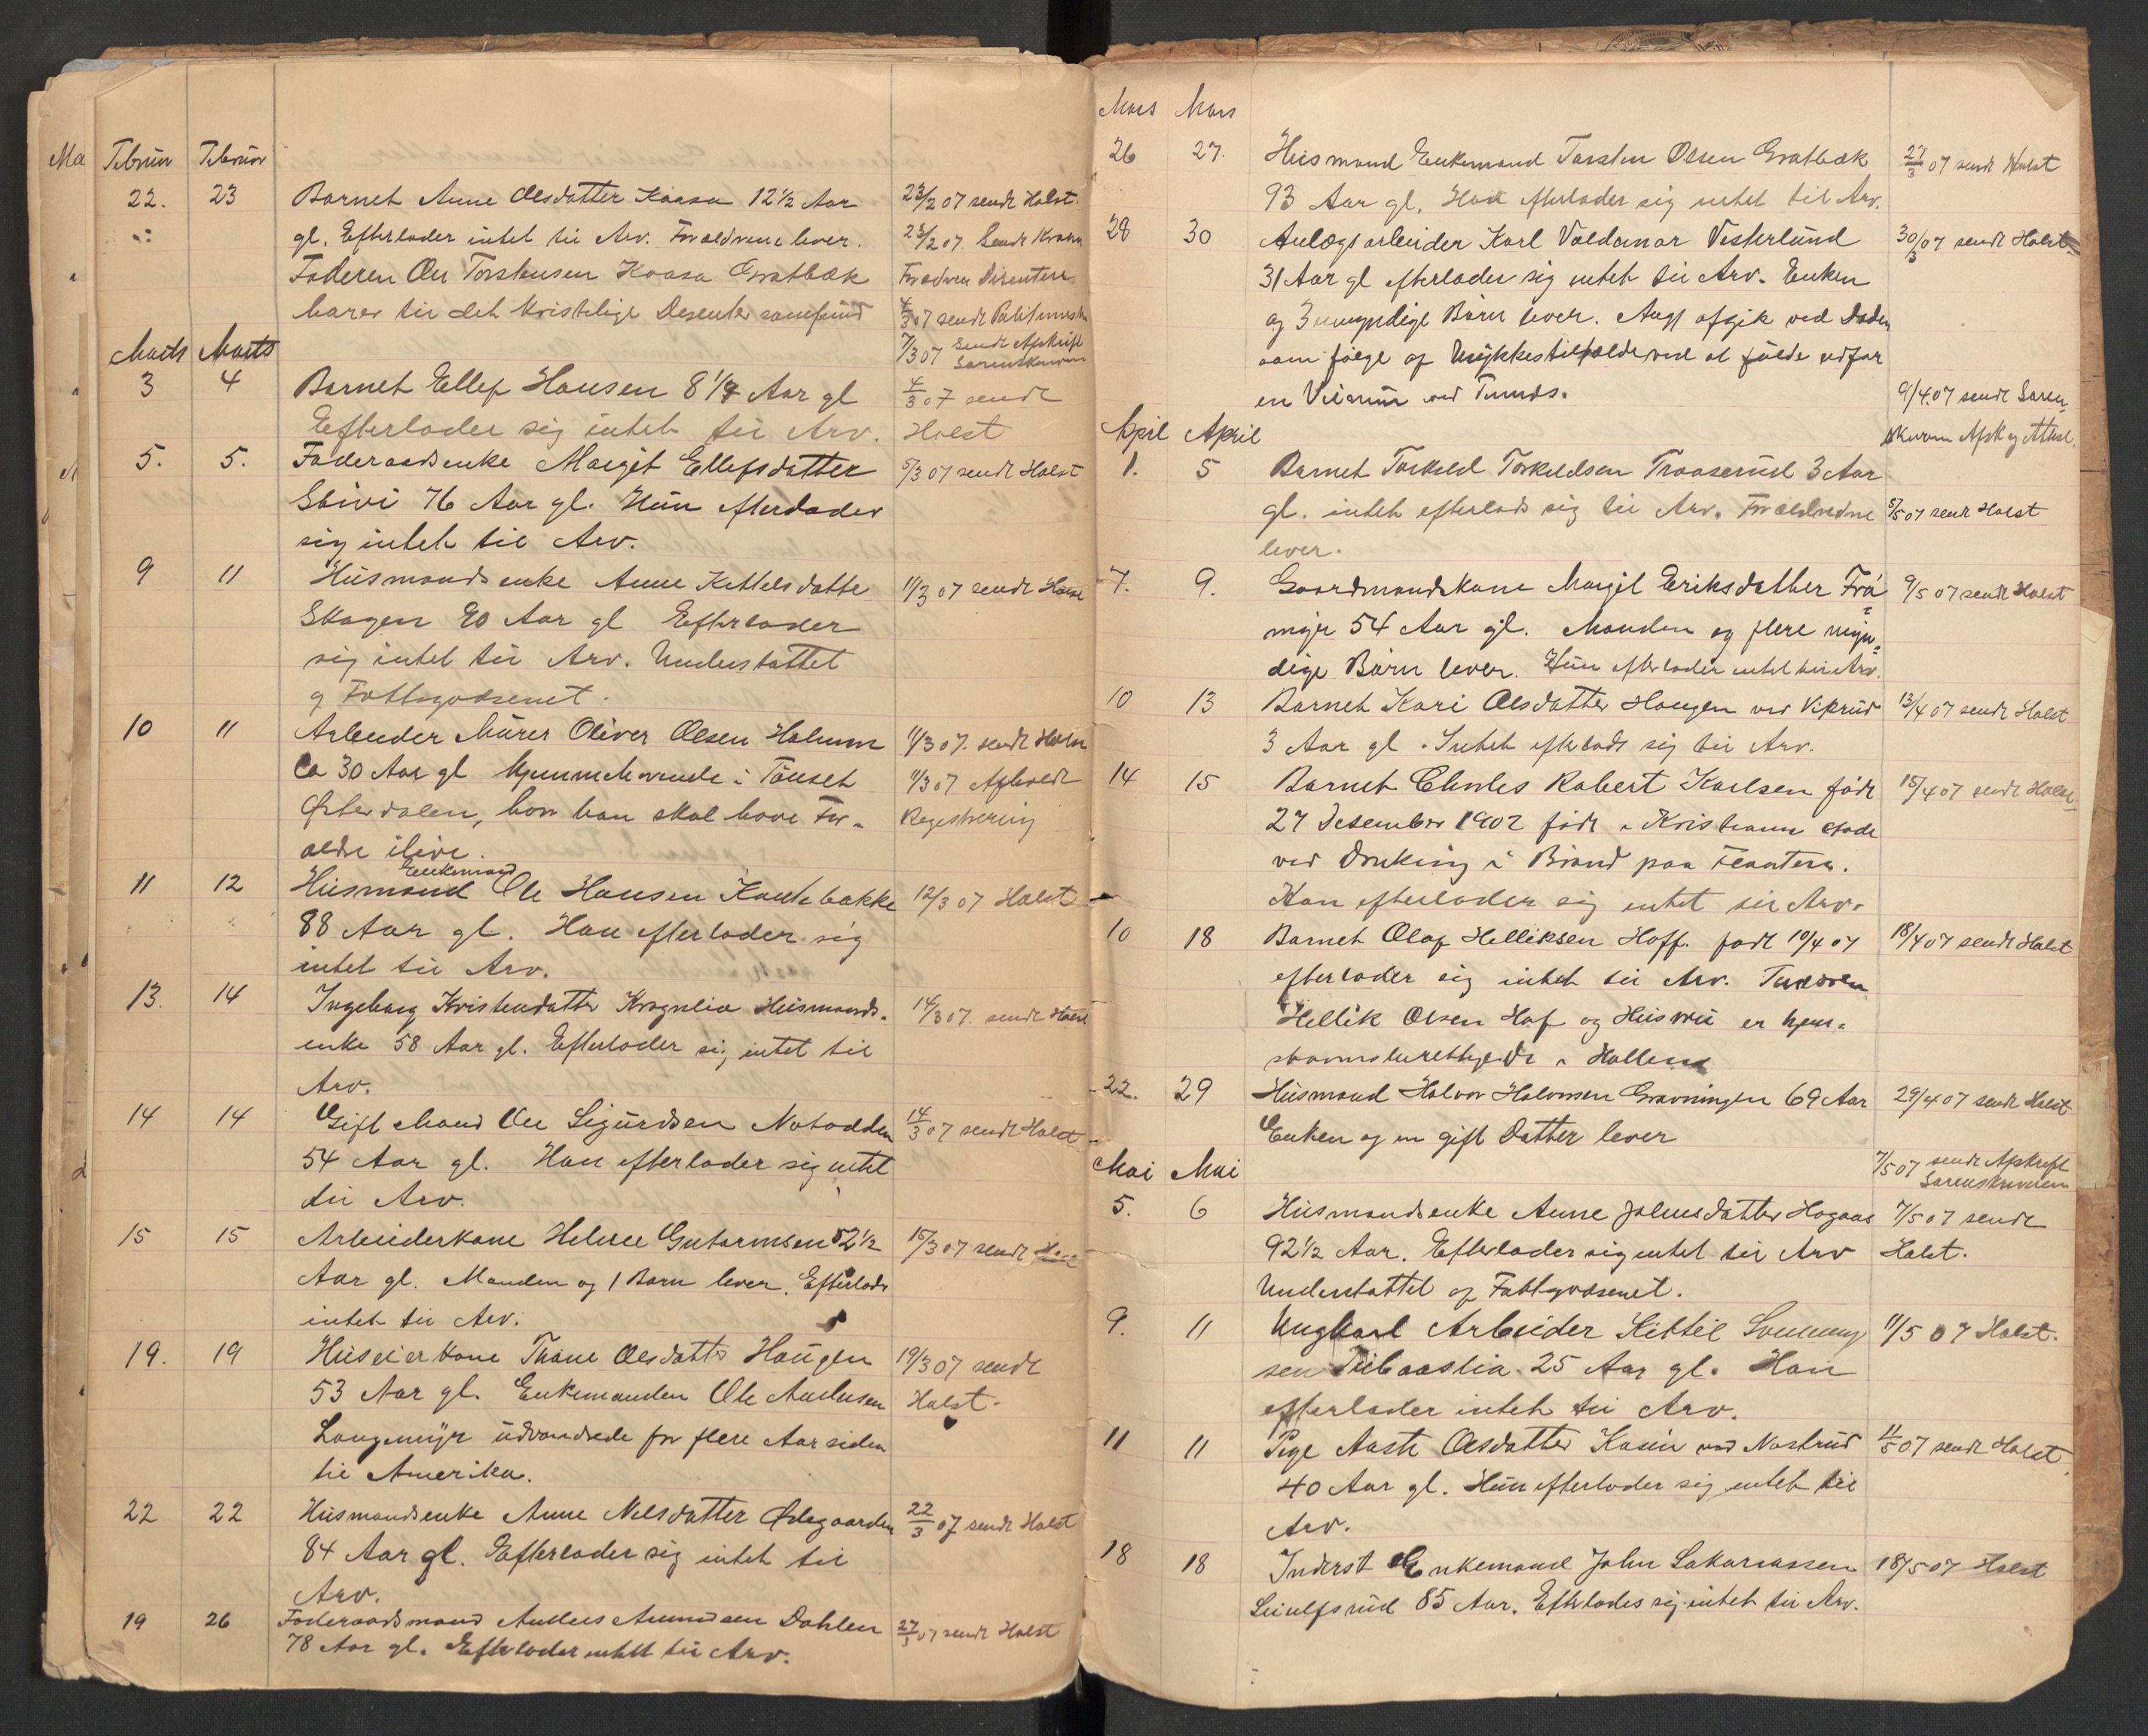 Februar Februar
22. 23 Barnet Anne Olsdatter Kaasa 12½ Aar 23/2 07 sendt Holst.
gl. Efterlader intet til Arv. Forældrene lever. 23/2 07. Sendt
Faderen Ole Torstensen Kaasa Gratbæk
hører til det Kristelige Desenter samfund 4/3 07 sendt
7/3 07 sendt Afskrift
Marts Marts Sorenskriveren
3 4 Barnet Ellef Hansen 8 Aar gl 4/3 07 sendt
Efterlader sig intet til Arv. Holst
5. 5. Føderaadsenke Margit Ellefsdatter 5/3 07 sendt Holst
Skivi 76 Aar gl. Hun efterlader
sig intet til Arv.
9 11 Husmandsenke Anne Kittelsdatte 11/3 07 sendt Holst
Skogen 90 Aar gl Efterlader
sig intet til Arv. Understøttet
af Fattigvæsenet.
10 11 Arbeider Murer Oliver Olsen 11/3 07. sendt
Ca 30 Aar gl Hjemmehørende i Tønset 11/3 07 Afholdt
Østerdalen, hvor han skal have For- Registrering
ældre ilive.
Enkemand
11 12 Husmand Ole Hansen Kaatebakke 12/3 07 Holst
88 Aar gl. Han efterlader sig
intet til Arv.
13. 14 Ingeborg Kristensdatter Husmands- 14/3 07. sendt Holst
enke 58 Aar gl. Efterlader sig intet til
Arv.
14 14 Gift Mand Ole Sigurdsen Notodden 14/3 07 sendt Holst
54 Aar gl. Han efterlader sig intet
til Arv.
15 15 Arbeiderkone Helene Gutormsen 52½ 15/3 07 sendt
Aar gl. Manden og 1 Barn lever. Efterlader
intet til Arv.
19. 19 Huseierkone Thone Olsdatter Haugen 19/3 07 sendt
53 Aar gl. Enkemanden Ole Holst.
Langemyr udvandrede for flere Aar siden
til Amerika.
22 22 Husmandsenke Anne Nilsdatter Ødegaarden 22/3 07 sendt Holst
84 Aar gl. Efterlader sig intet til
Arv.
19 26 Føderaadsmand Anders Amundsen Dahlen 27/3 07 sendt Holst
78 Aar gl. Efterlader intet til Arv.
Mars Mars
26 27. Husmand Enkemand Torsten Olsen Gratbæk 27/3 07 sendt Holst
93 Aar gl. Han efterlader sig intet til Arv.
28 30 Anlægsarbeider Karl Valdemar Vesterlund 30/3 07 sendt Holst
31 Aar gl efterlader sig intet til Arv. Enken
og 3 umyndige Børn lever. afgik ved Døden
som følge af Ulykkestilfælde ved at falde udfor
en ved Tinnfos. 9/4 07 sendt Soren-
April April skriveren Afsk og
1. 5 Barnet Torkeld Torkeldsen Traaserud 3 Aar
gl. intet efterlod sig til Arv. Forældrene 5/5 07 sendt Holst
lever.
7. 9. Gaardmandskone Margit Eriksdatter Frø- 9/5 07 sendt Holst
myr 54 Aar gl. Manden og flere myn-
dige Børn lever. Hun efterlader intet til Arv.
10 13 Barnet Kari Olsdatter Haugen ved Viprud 13/4 07 sendt Holst
3 Aar gl. Intet efterlods sig til Arv.
14 15 Barnet Charles Robert Karlsen født 15/4 07 sendt Holst
27 Desember 1902 født i Kristiania døde
ved Drukning i Brønd paa
Han efterlader sig intet til Arv.
10 18 Barnet Olaf Helliksen Hoff. født 10/4 07 18/4 07 sendt Holst
efterlader sig intet til Arv.
Hellik Olsen Hof og Hustru er hjem-
stavnsberettigede i
22. 29 Husmand Halvor Halvorsen Gravningen 69 Aar 29/4 07 sendt Holst
Enken og en gift Datter lever
Mai Mai 7/5 07 sendt Afskrift
Sorenskriveren
5. 6 Husmandsenke Anne Johnsdatter Hogaas 7/5 07 sendt
92½ Aar. Efterlader sig intet til Arv Holst.
Understøttet af Fattigvæsenet.
9. 11 Ungkarl Arbeider Kittil 11/5 07 Holst.
sen 25 Aar gl. Han
efterlader intet til Arv.
11 11 Pige Aaste Olsdatter Kasin ved Nastrud 11/5 07 sendt Holst
40 Aar gl. Hun efterlader sig intet til
Arv.
18 18 Inderst Enkemand John Sakariassen 18/5 07 Holst
Leiulfsrud 85 Aar. Efterlades sig intet til Arv.